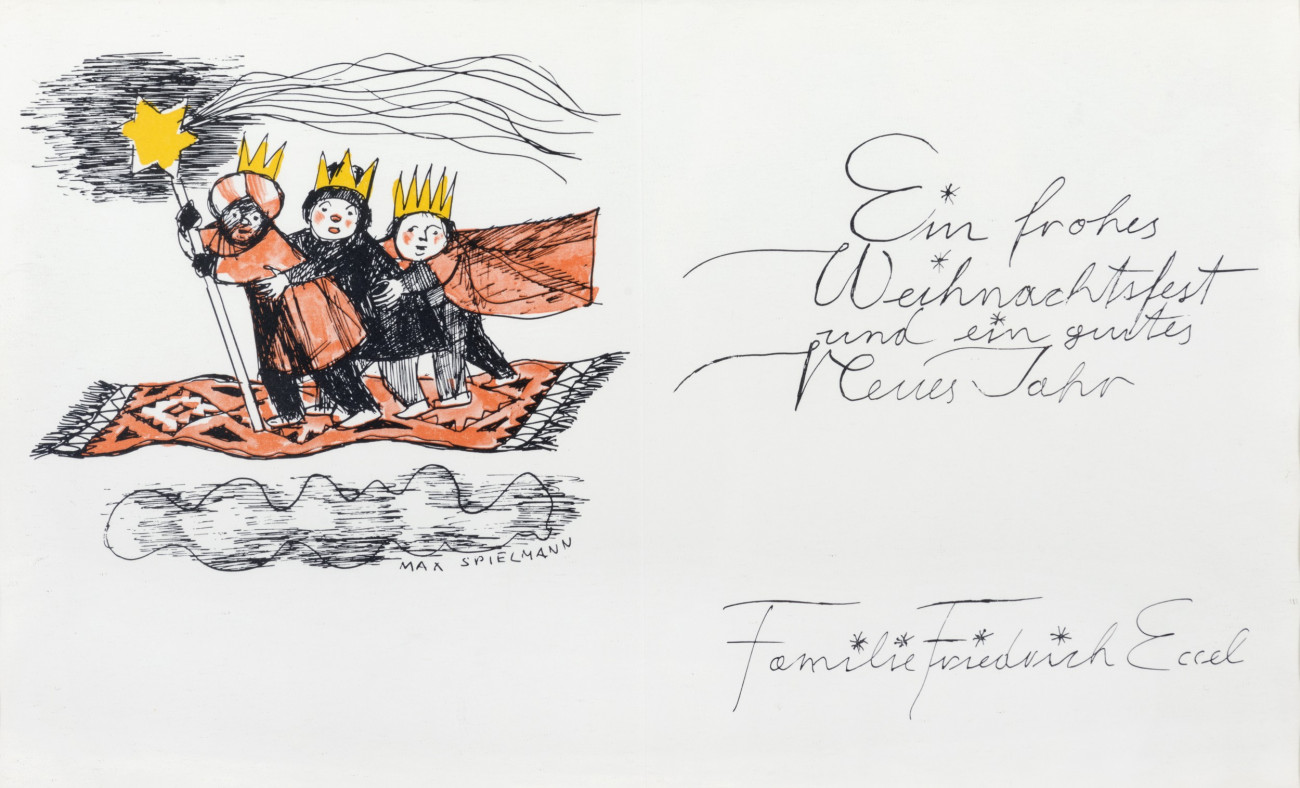 MAX SPIELMANN
Ein frohes
Weihnachtsfest
und ein gutes
Neues Jahr
Familie Friedrich Eccel